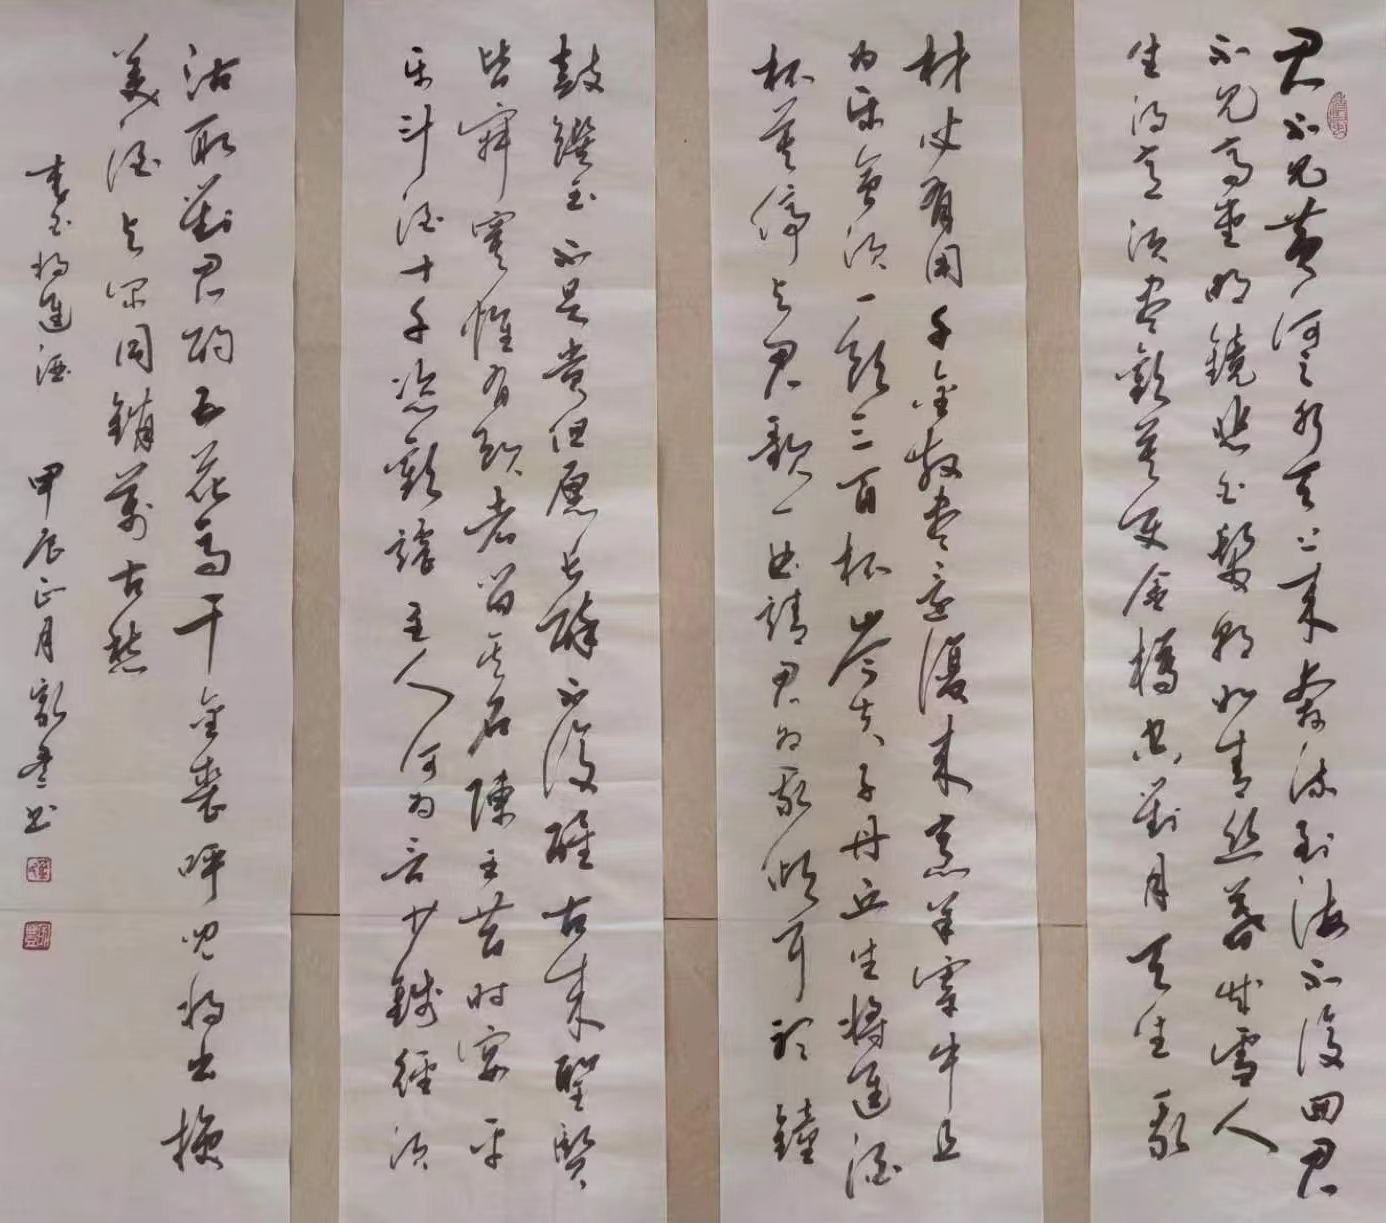 君不见黄河之水天上来奔流到海不復回君
不见高堂明镜悲白髮朝如青丝暮成雪人
生得意须尽歡莫使金樽空對月天生我
材必有用千金散尽还復来烹羊宰牛且
为乐会须一飲三百杯岑夫子丹丘生將進酒
杯莫停与君歌一曲請君为我倾耳聽鐘
鼓馔玉不足贵但愿长醉不復醒古来聖賢
皆寂寞惟有飲者留其名陳王昔时宴平
乐斗酒十千恣歡謔主人何为言少錢徑须
沽取對君酌五花馬千金裘呼児将出換
美酒与尔同銷萬古愁
李白将進酒 甲辰正月 书